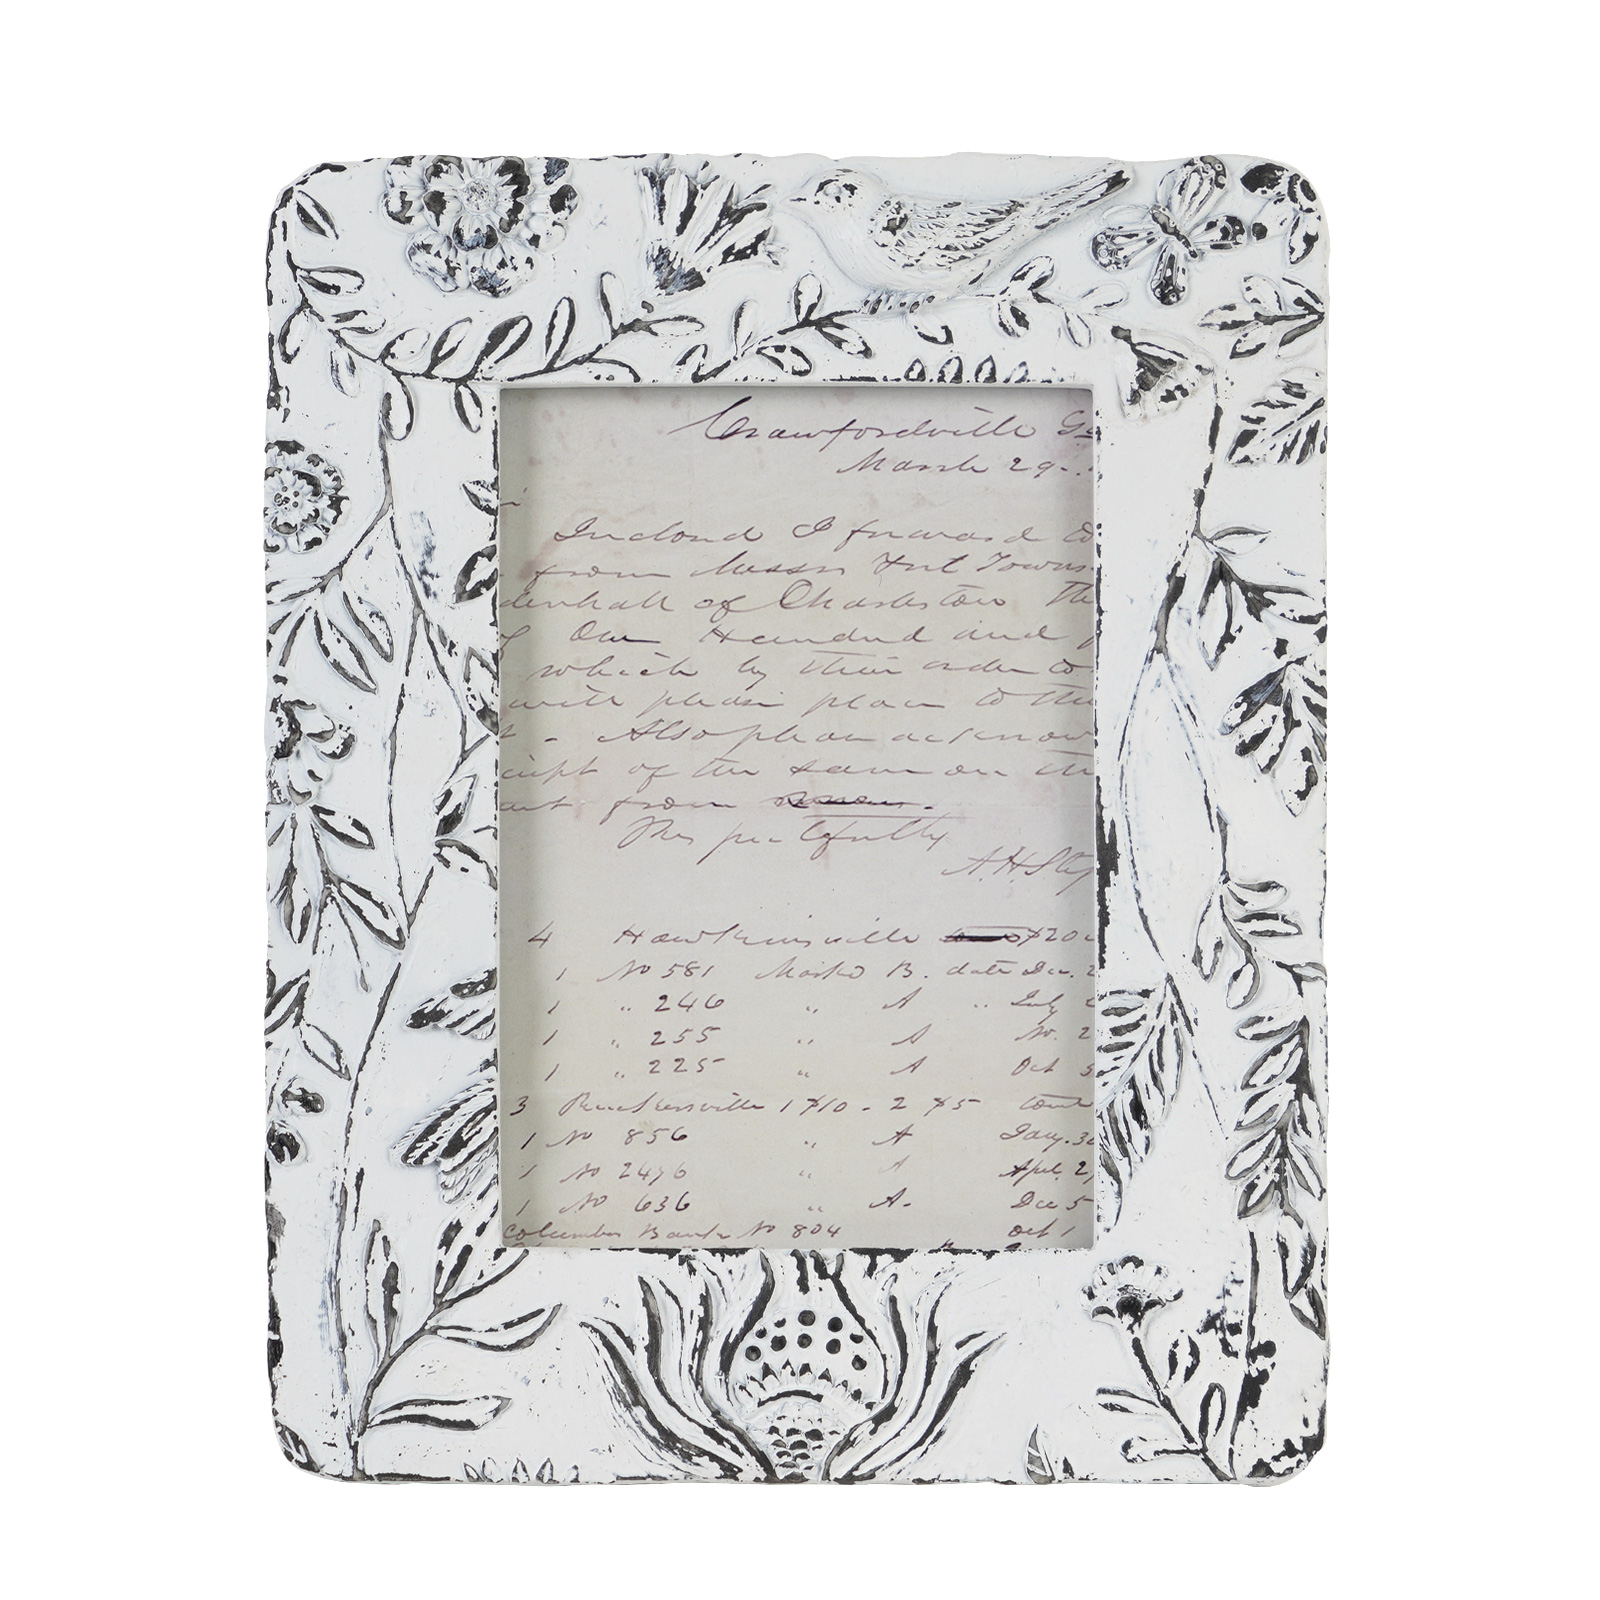 Crawfordville Ga
March 29
Inclosed I forward to
from Messrs Towns
denhall of Charleston The
of One Hundred and
which by their order to
with please place to the
t - Also please acknow
ceipt of the same on th
ant from
Respectfully
A. H. Step
4 Hawkinsville $20
1 No 581 Marked B. date Dec. 2
1 " 246 " A " July
1 " 255 " A No. 2
1 " 225 " A Oct 3
3 Ruckersville 1 $10 - 2 $5
1 No 856 " A Jany. 30
1 No 2476 " A Apl. 2
1 No 636 " A. Dec 5
Columbus Bank No 804 Oct 1